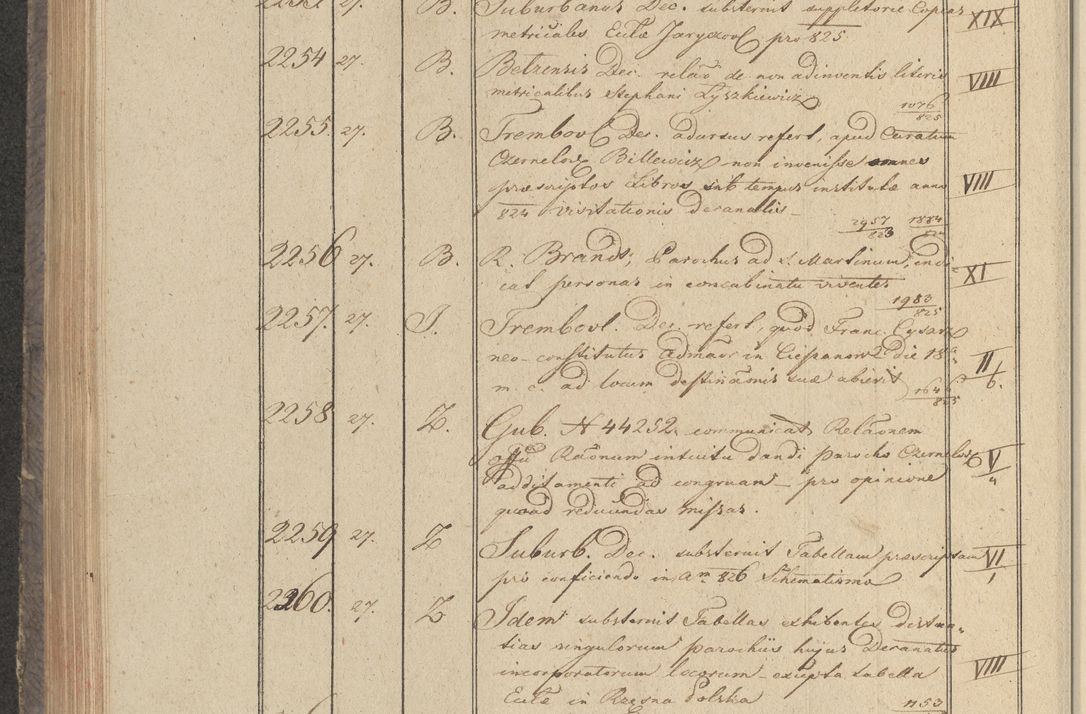 2253 27. B. Suburbanus Dec. substernit suppletorie Copias XIX
metricales Eccłæ Jaryczov pro 825
2254 27. B. Betzensis Dec. relãõ de non adinventis literis VIII
metricalibus Stephani Łyszkiewicz
1076/825
2255. 27. B. Trembovl Dec. adursus refert, apud Curatum
Czernelov Billewicz non invenisse omnes
præscriptos Libros sub tempus institutæ anno VIII
824 visitationis decanalis
2957/823 1884/824
2256 27. B. R. Brands, Parochus ad S. Martinum, indi-
cat personas in concubinatu viventes XI
1983/825
2257. 27. J. Trembovl. Dec. refert, quod Franc. Cysarz
neo-constitutus admãor in Cieszanow die 18a II/6.
m. c. ad locum destinãonis suæ abierit 1646/825
2258 27. Z. Gub. N 44252 communicat Relãonem
offii Rãonum intuitu dandi parocho Czernelov V
additamenti ad congruam – pro opinione
quoad reducendas missas.
2259 27. Z Suburb. Dec. substernit Tabellam præscriptam VI
pro conficiendo in am 826 Schematismo
2260. 27. Z Idem substernit Tabellas exhibentes distan-
tias singulorum parochiis hujus Decanatus
incorporatorum locorum – excepta tabella VIII
Eccłæ in Rzęsna Polska
1153